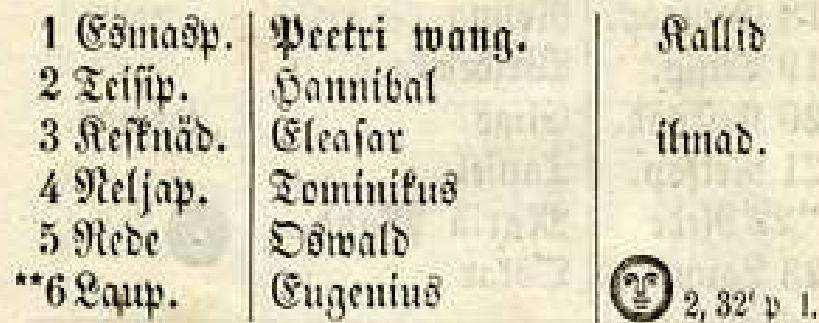 1 Esmasp. Peetri wang. Kallid
2 Teisip. Hannibal
3 Kesknäd. Eleasar ilmad.
4 Neljap. Tominikus
5 Rede Oswald
**6 Laup. Eugenius 2, 32' p l.